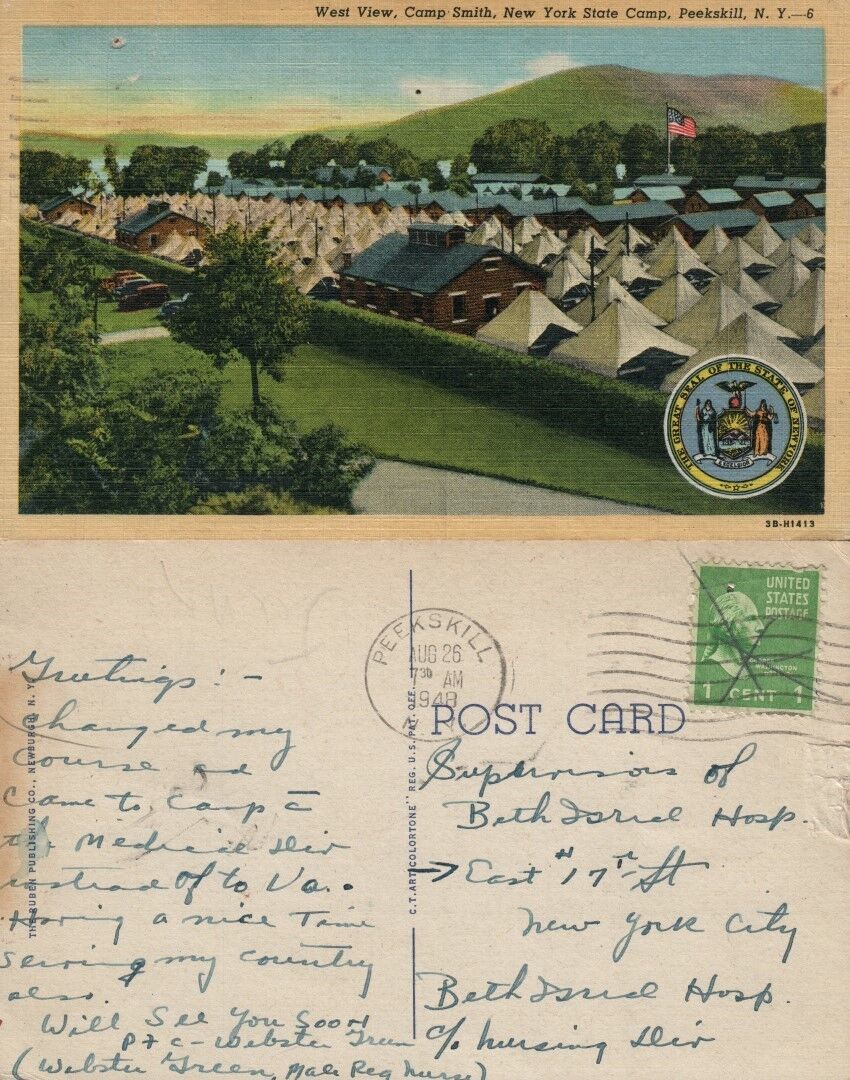 West View, Camp Smith, New York State Camp, Peekskill, N. Y.—6
THE GREAT SEAL OF THE STATE OF NEW YORK
EXCELSIOR
3B-H1413
PEEKSKILL
AUG 26
7 30 AM
1948
N.Y.
UNITED
STATES
POSTAGE
WASHINGTON
1 CENT 1
POST CARD
THE RUBEN PUBLISHING CO., NEWBURGH, N. Y.
C.T. ART COLORTONE" REG. U.S. PAT. OFF.
Greetings! –
Changed my
Course and
Came to Camp c̄
the Medical Div
instead of to Va.
Having a nice Time
serving my country
also.
Will See You Soon
Pfc – Webster Green
(Webster Green, Male Reg Nurse)
Supervisors of
Beth Israel Hosp.
→ East # 17th St
New York City
Beth Israel Hosp.
c/o Nursing Div